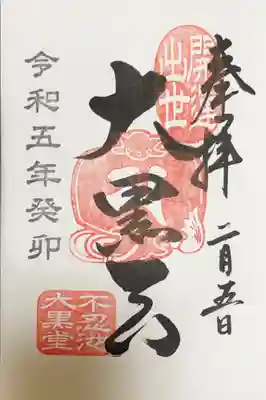 奉拝
二月五日
開運
出世
大黒天
令和五年癸卯
不忍池
大黒堂